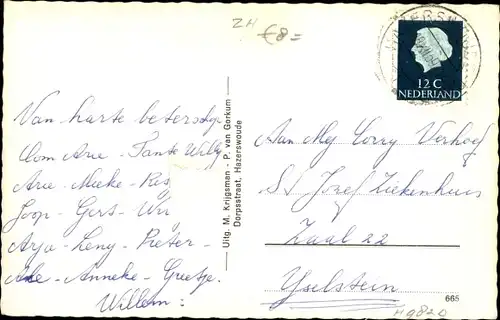 ZH
€8=
12 C
NEDERLAND
Van harte beterschap
Oom Arie - Tante Willy
Arie - Mieke - Rus
Joop - Gert - Wil
Arja - Leny - Pieter -
Anneke - Greetje.
Willem:
Uitg. M. Krijgsman - P. van Gorkum
Dorpsstraat, Hazerswoude
Aan Mej Corry Verhoef
St Josef Ziekenhuis
Zaal 22
Yselstein
665
M9820